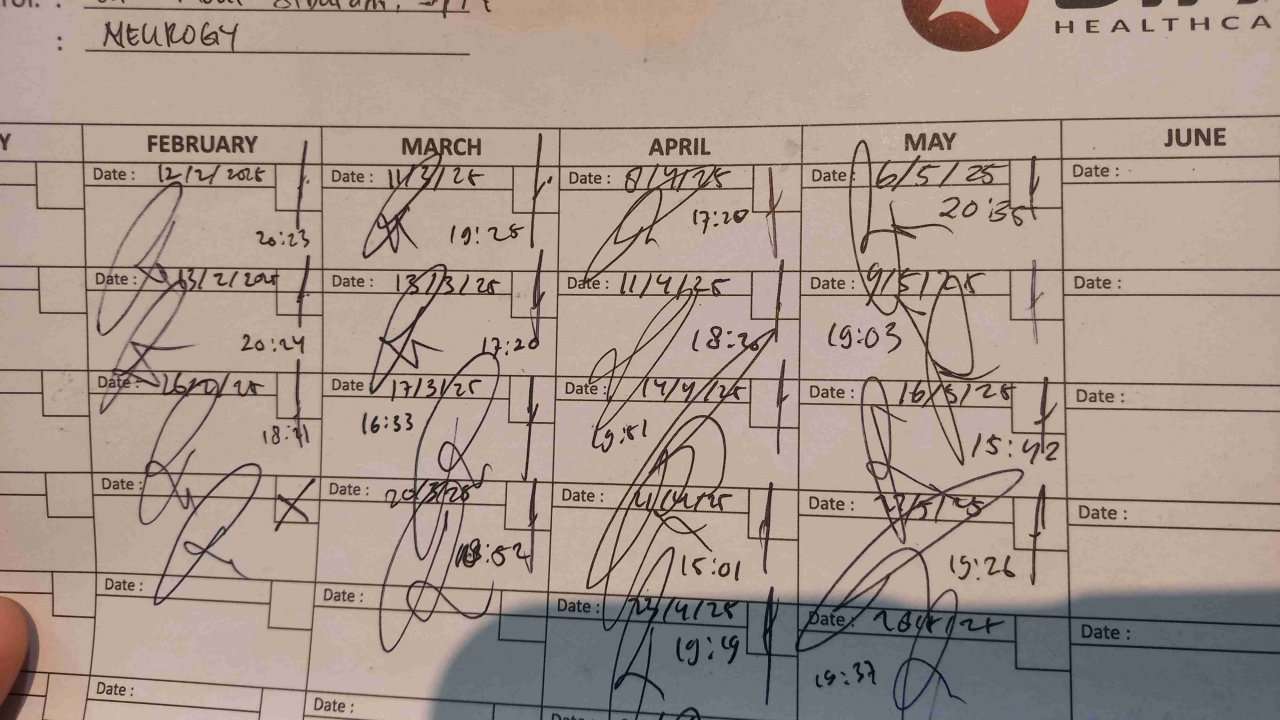 :
: MEUROGY
HEALTHCA
Y FEBRUARY MARCH APRIL MAY JUNE
Date : 12/2/2025 Date : 11/3/25 Date : 8/4/25 Date : 6/5/25 Date :
20:23 19:25 17:20 20:35
Date : 13/2/2025 Date : 13/3/25 Date : 11/4/25 Date : 9/5/25 Date :
20:24 17:20 18:20 19:03
Date : Date : 17/3/25 Date : 14/4/25 Date : 16/5/25 Date :
16:33 19:51 15:42
Date : Date : 20/3/25 Date : Date : 22/5/25 Date :
18:52 15:01 15:26
Date : Date : Date : 23/4/25 Date : Date :
19:19 19:37
Date : Date : Date :